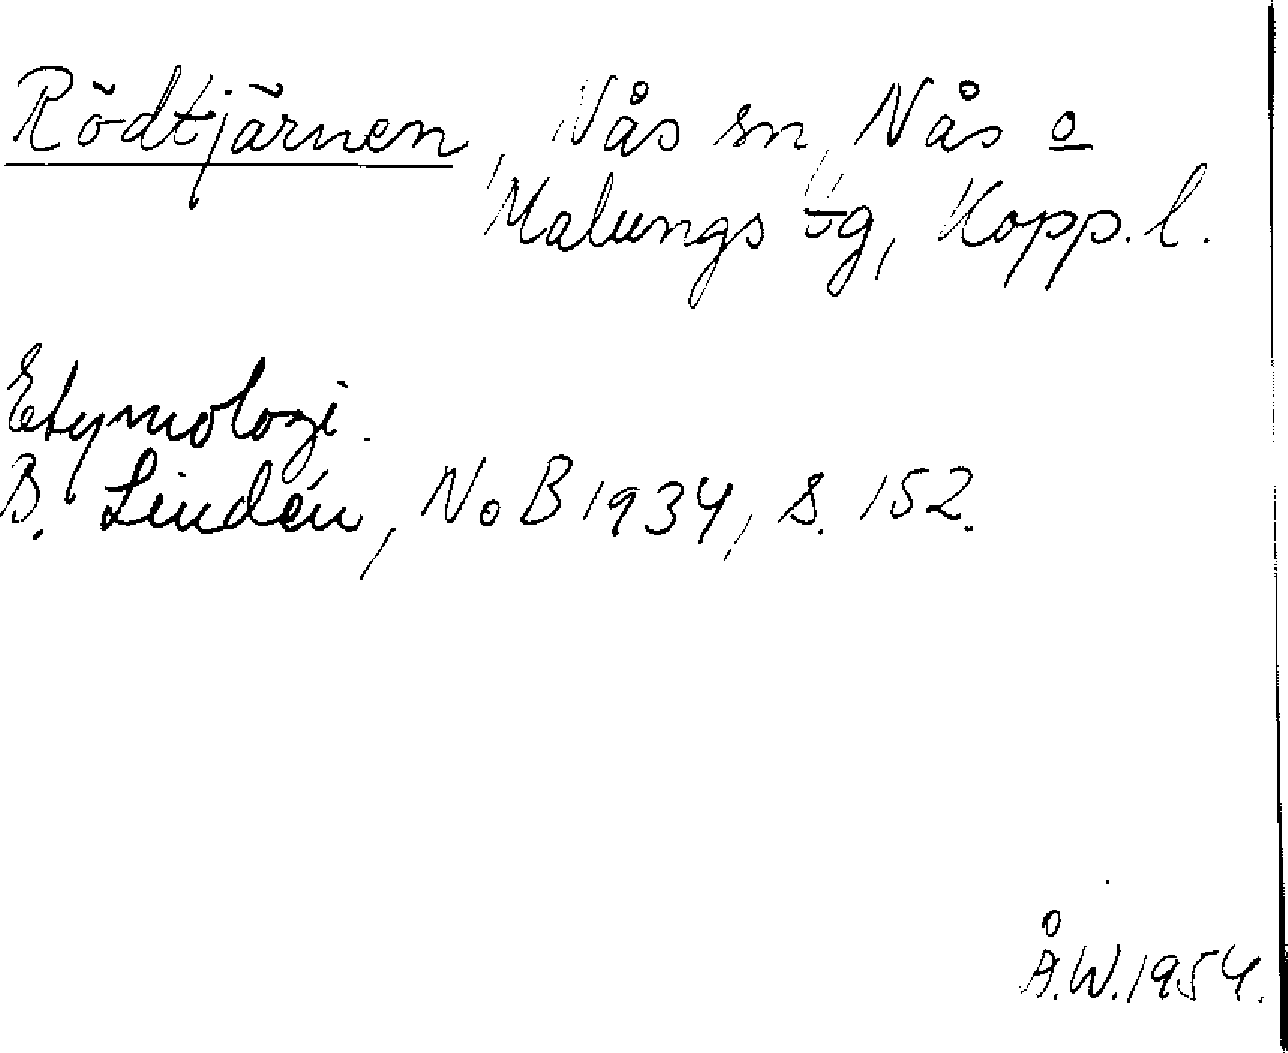 Rödtjärnen, Nås sn, Nås o
Malungs tg, Kopp. l.
Etymologi.
B. Lindén, NoB 1934, S. 152.
Å.W. 1954.